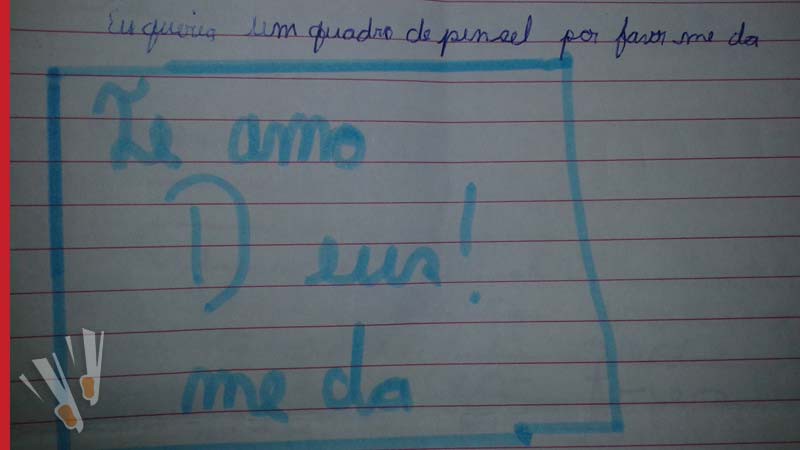 Eu queria um quadro de pinsel por favor me da
Te amo
Deus!
me da